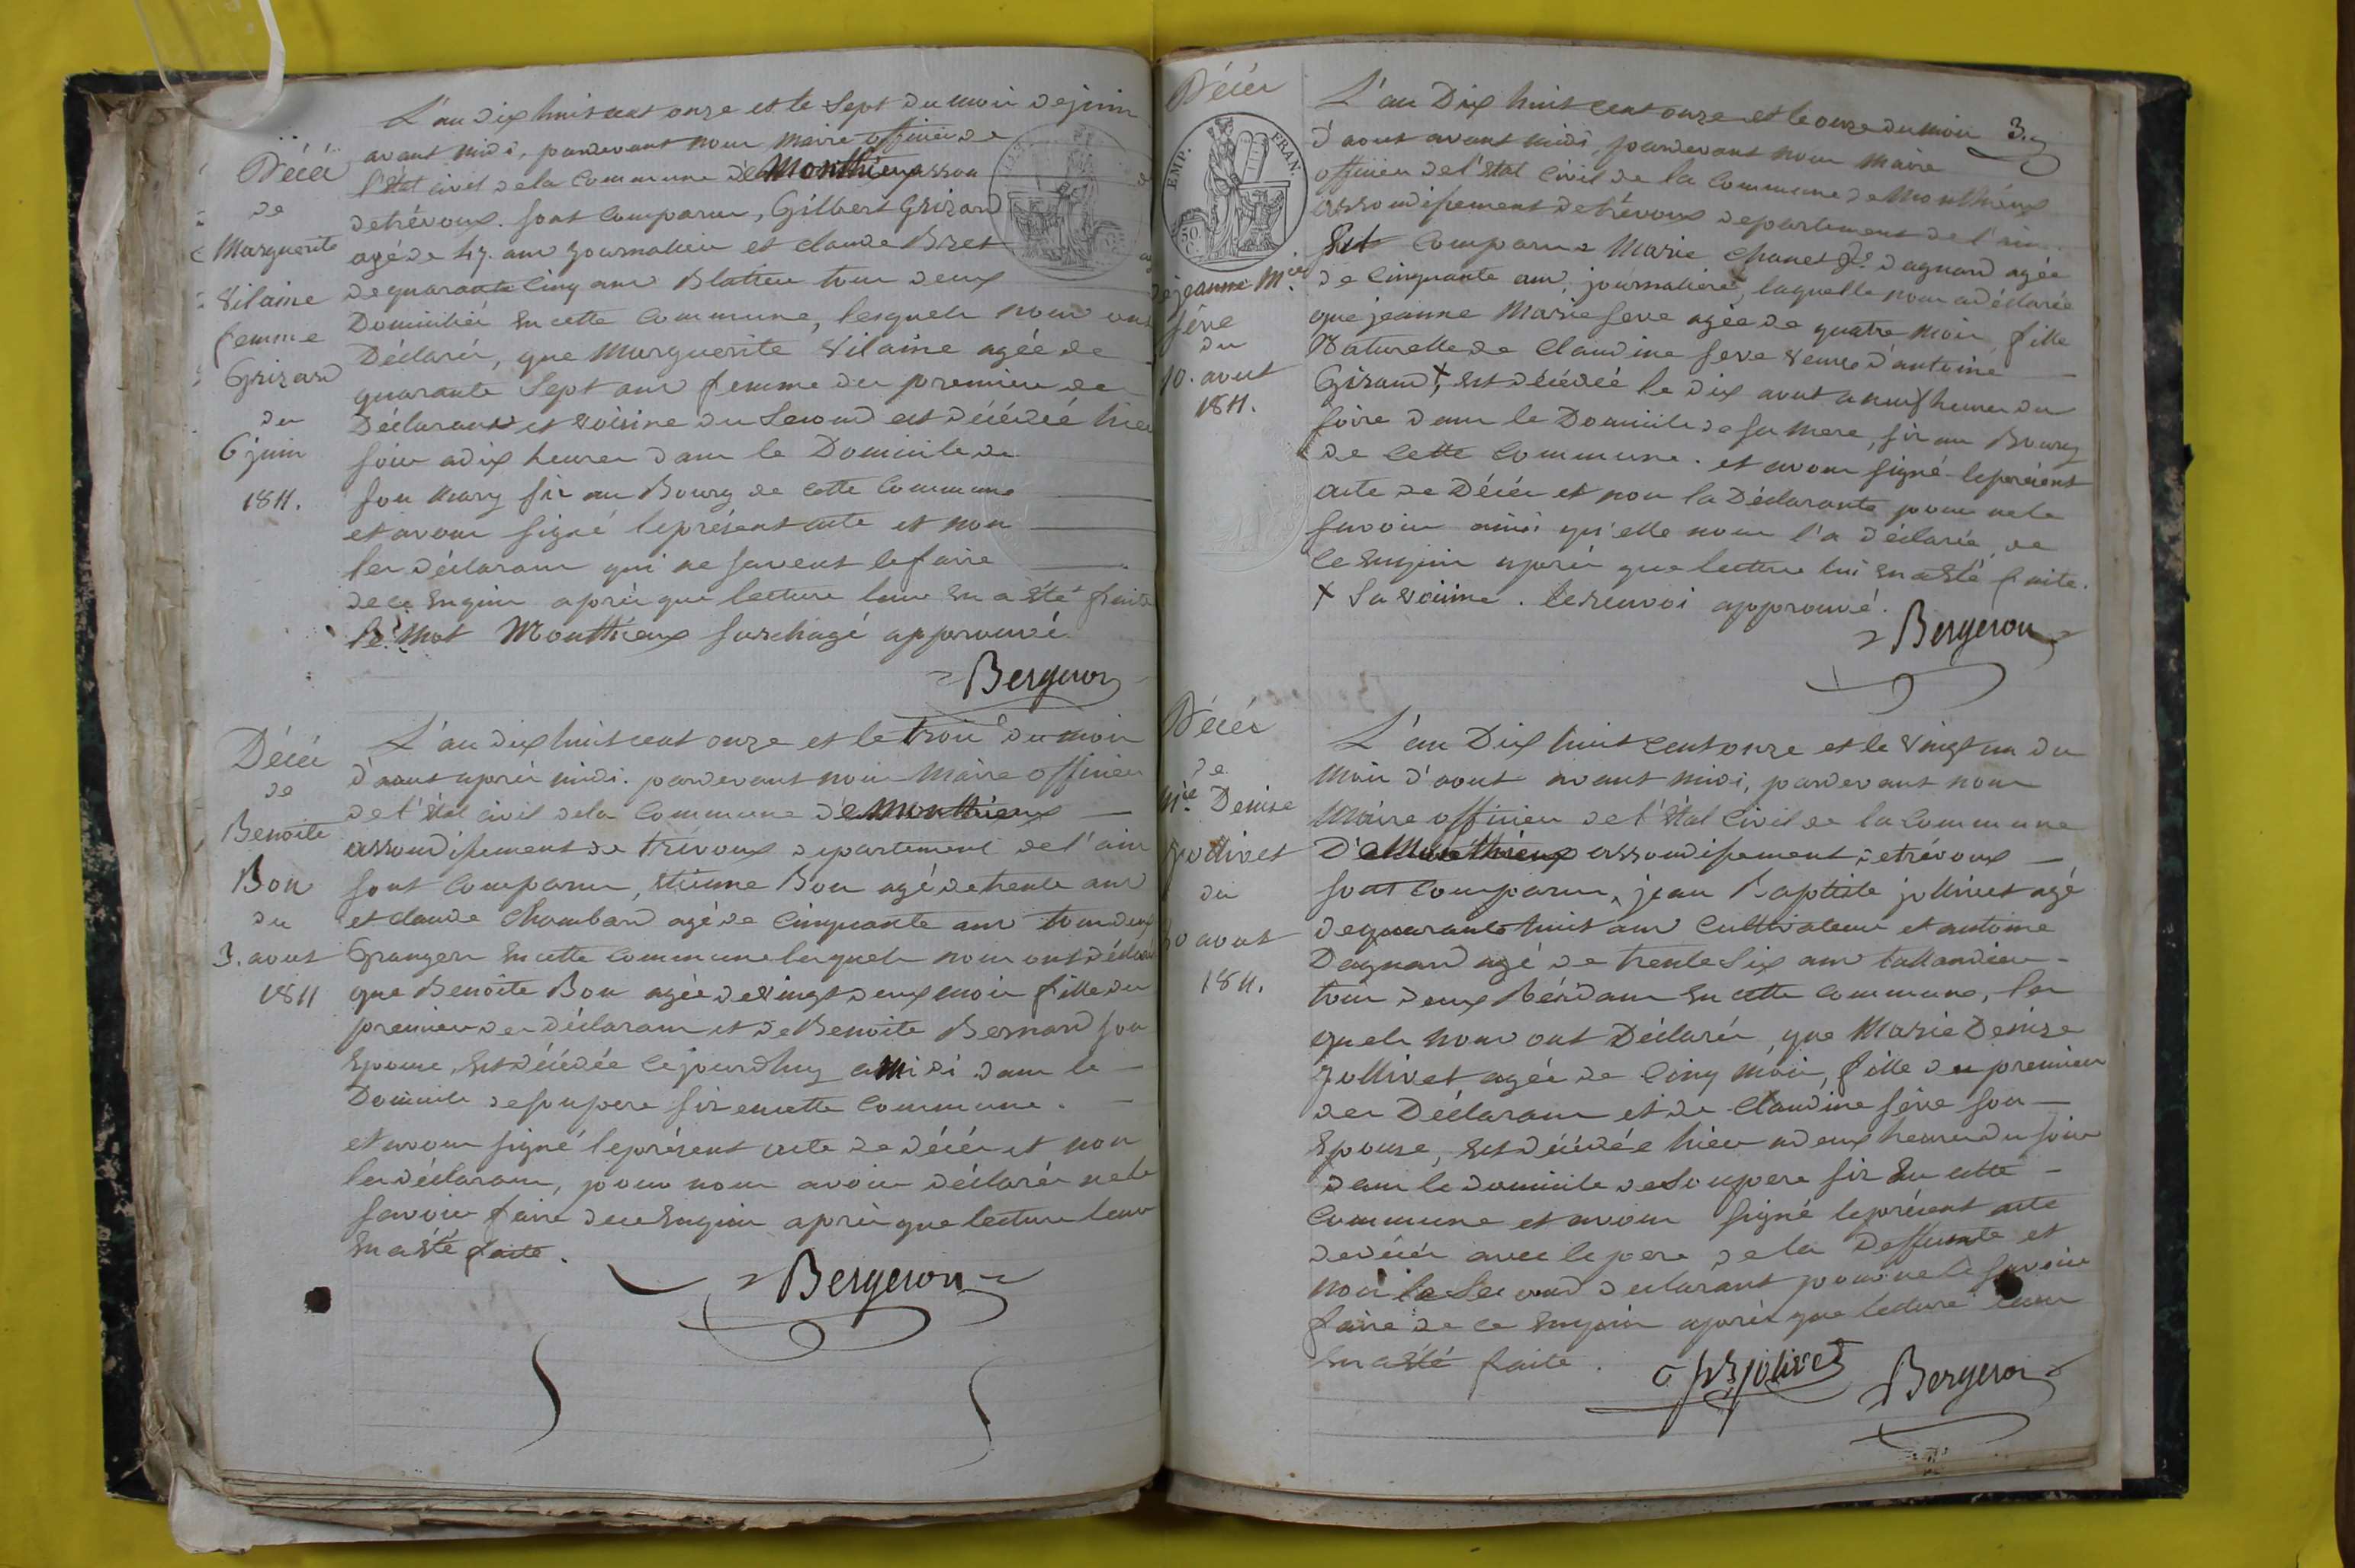 L'an dix huit cent onze et le sept du mois de juin
avant midi, pardevant nous maire officier de
l'état civil de la commune de Monthieux asson
detrévoux. sont comparus, Gilbert Grizard
agé de 47. ans journalier et claude Bizet
de quarante cinq ans Blattier tous deux
Domiciliés en cette commune, lesquels nous ont
Déclarés, que Marguerite Vilaine agée de
quarante Sept ans femme du premier des
Déclarants et voisine du Second est décédée hier
soir a dix heures dans le Domicile de
son mary sis au Bourg de cette commune
et avons signé le présent acte et non
les déclarans qui ne savent le faire
de ce enquis après que lecture leur en a été faite
le mot Monthieux surchagé approuvé
Bergeron
Décés
de
Marguerite
Vilaine
femme
Grizard
du
6 juin
1811.
Décés
de
Benoite
Bon
du
3. aout
1811
L'an dix huit cent onze et le trois du mois
d'aout après midi. pardevant nous Maire officier
de l'état civil de la commune de Monthieux
arrondissement de trévoux departement de l'ain
sont comparus, étienne Bon agé de trente ans
et claude Chambard agé de cinquante ans tous deux
Grangers en cette commune lesquels nous ont déclarés
que Benoite Bon agée de vingt deux mois fille du
premier des déclarans et de Benoite Bernard son
épouse, est décédée cejourdhuy a midi dans le
Domicile de son pere sis en cette commune.
et avons signé le présent acte de décés et non
les déclarans, pour nous avoir déclarés ne le
savoir faire de ce enquis après que lecture leur
en a été faite.
Bergeron
Décés
EMP. FRAN.
de jeanne Mie
séve
du
10. aout
1811.
3.
L'an Dix huit cent onze et le onze du mois
d'aout avant midi, pardevant nous Maire
officier de l'état civil de la commune de Monthieux
arrondissement de trévoux departement de l'ain.
Est comparue Marie Chanet fe. dagnard agée
de cinquante ans, journaliere, laquelle nous a déclarée
que jeanne Marie seve agée de quatre mois fille
Naturelle de Claudine seve veuve d'antoine
Giraud +, est décédée le dix aout a neuf heures du
soire dans le Domicile de sa mere, sis au Bourg
de cette commune. et avons signé le présent
acte de Décés et non la Déclarante pour ne le
savoir ainsi qu'elle nous l'a déclarée, de
ce enquis après que lecture lui en a été faite.
+ sa voisine. le renvoi approuvé.
Bergeron
Décés
de
Mie. Denise
jollivet
du
20 aout
1811.
L'an Dix huit cent onze et le vingt un du
mois d'aout avant midi, pardevant nous
Maire officier de l'état civil de la commune
De Monthieux arrondissement de trévoux
sont comparus, jean Baptiste jollivet agé
de quarante huit ans cultivateur et antoine
Dagnard agé de trente six ans taillandier
tous deux Résidans en cette commune, les
quels nous ont Déclarés, que Marie Denise
jollivet agée de cinq mois, fille du premier
des Déclarans et de Claudine séve son
épouse, est décédée hier a deux heures du soir
dans le domicile de son pere sis en cette
commune et avons signé le présent acte
de décés avec le pere de la deffunte et
non le second déclarant pour ne le savoir
faire de ce enquis après que lecture leur
en a été faite.
jB jolivet Bergeron